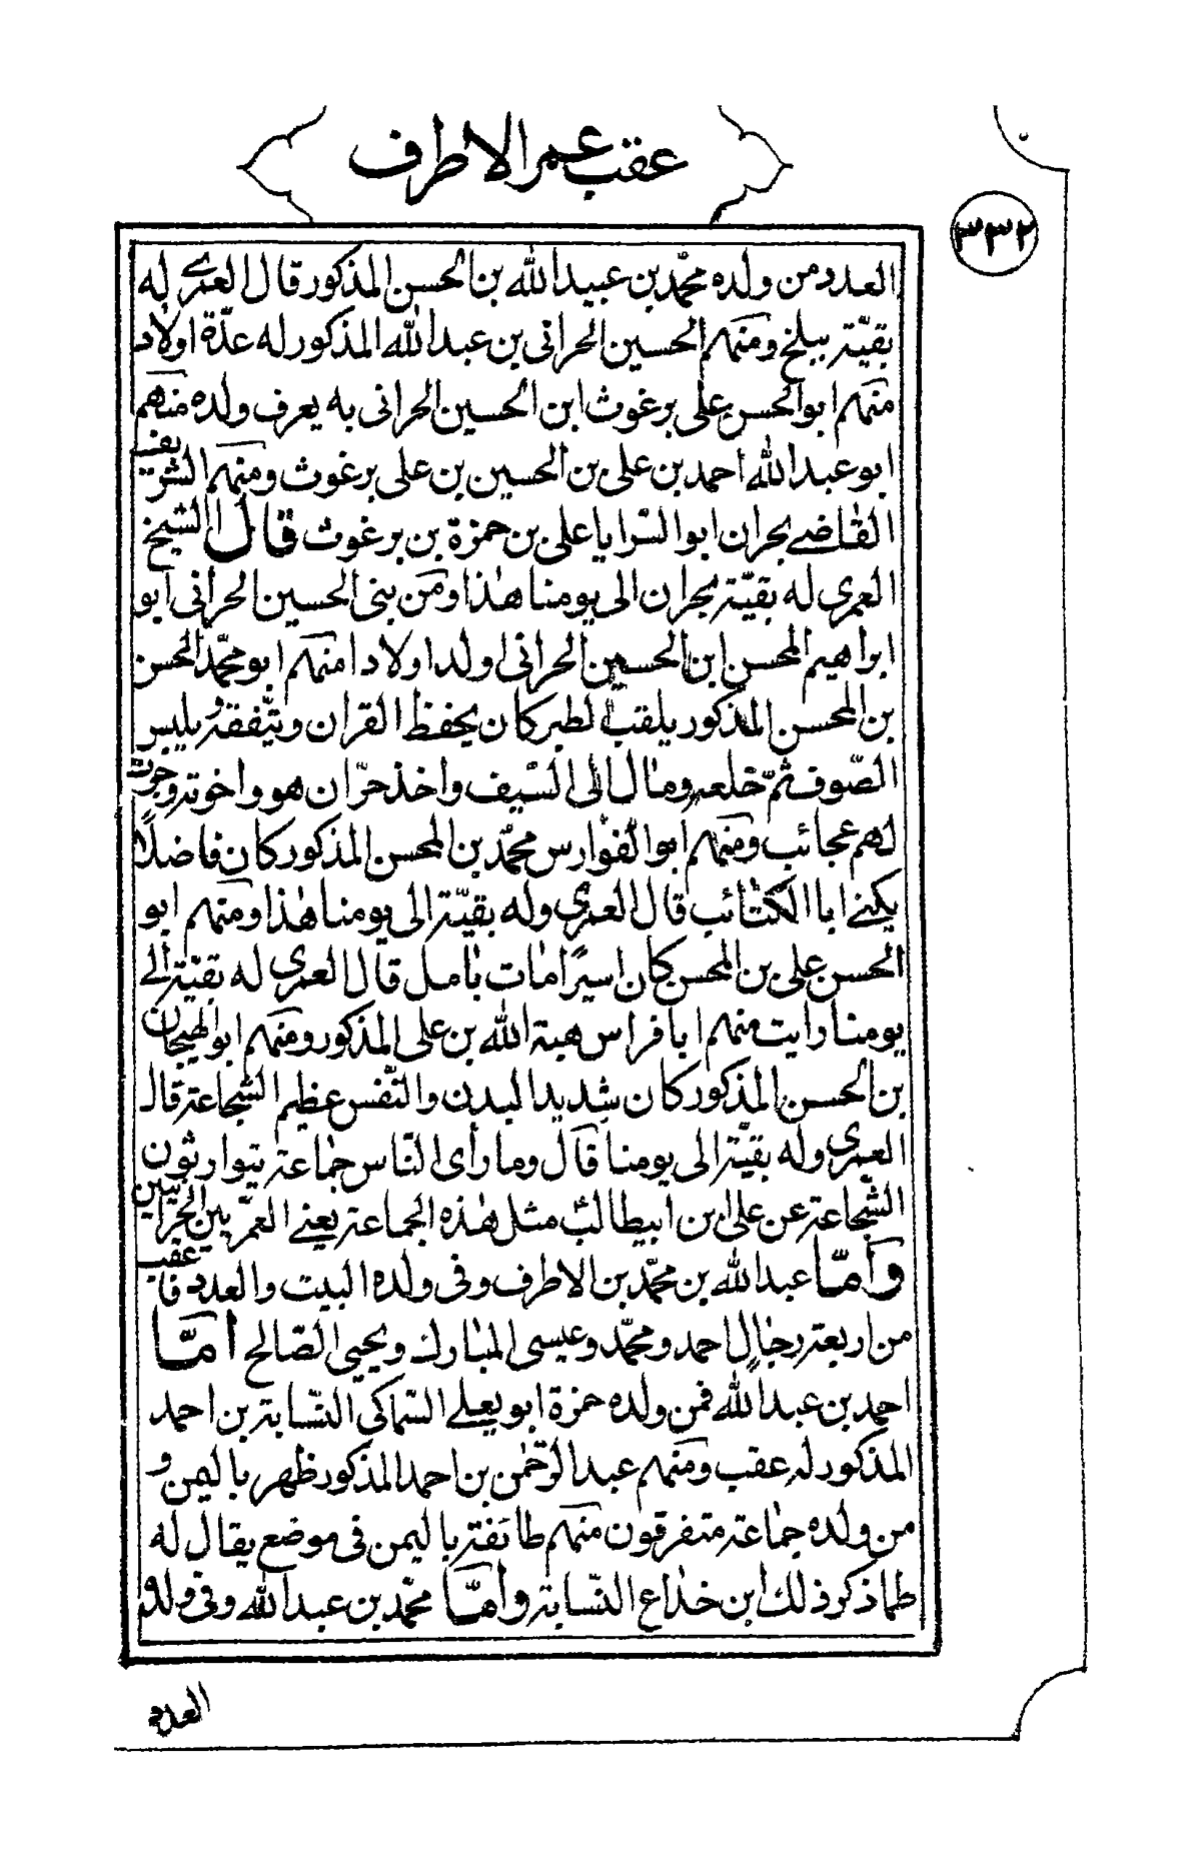 عقب عمر الاطرف
٣٣٢
العدد من ولده محمّد بن عبيد الله بن الحسن المذكور قال العمرى له
بقيّة ببلخ ومنهم الحسين الحرانى بن عبد الله المذكور له عدّة اولاد
منهم ابو الحسن على برغوث ابن الحسين الحرانى به يعرف ولده منهم
ابو عبد الله احمد بن على بن الحسين بن على برغوث ومنهم الشريف
القاضے بحران ابو السّرايا على بن حمزة بن برغوث قال الشيخ
العمرى له بقيّة بحران الى يومنا هذا ومن بنى الحسين الحرانى ابو
ابراهيم المحسن ابن الحسين الحرانى اولد اولادا منهم ابو محمّد الحسن
بن المحسن المذكور يلقب لطبر كان يحفظ القران ويتّفقه و يلبس
الصّوف ثمّ خلعه ومال الى السّيف واخذ حرّان هو واخوته وجرت
لهم عجائب ومنهم ابو الفوارس محمّد بن المحسن المذكور كان فاضلاً
يكنے ابا الكتائب قال العمرى وله بقيّة الى يومنا هذا ومنهم ابو
الحسن على بن المحسن كان اسيرًا مات بامل قال العمرى له بقيّة الے
يومنا رايت منهم ابا فراس هبة الله بن على المذكور ومنهم ابو الهيجان
بن الحسن المذكور كان شديد البدن والنّفس عظيم الشّجاعة قال
العمرى وله بقيّة الى يومنا قال وما رأى النّاس جماعة يتوارثون
الشّجاعة عن على بن ابيطالب مثل هذه الجماعة يعنے العمّريين الحرانيين
وامّا عبد الله بن محمّد بن الاطرف وفى ولده البيت والعدد فاعقب
من اربعة رجال احمد ومحمّد وعيسى المبارك ويحيى الصّالح امّا
احمد بن عبد الله فمن ولده حمزة ابو يعلے السّماكى النّسّابة بن احمد
المذكور له عقب ومنهم عبد الرّحمن بن احمد المذكور ظهر باليمن و
من ولده جماعة متفرقون منهم طائفة باليمن فى موضع يقال له
طما ذكر ذلك ابن خداع النّسّابة وامّا محمّد بن عبد الله وفى ولده
العدد